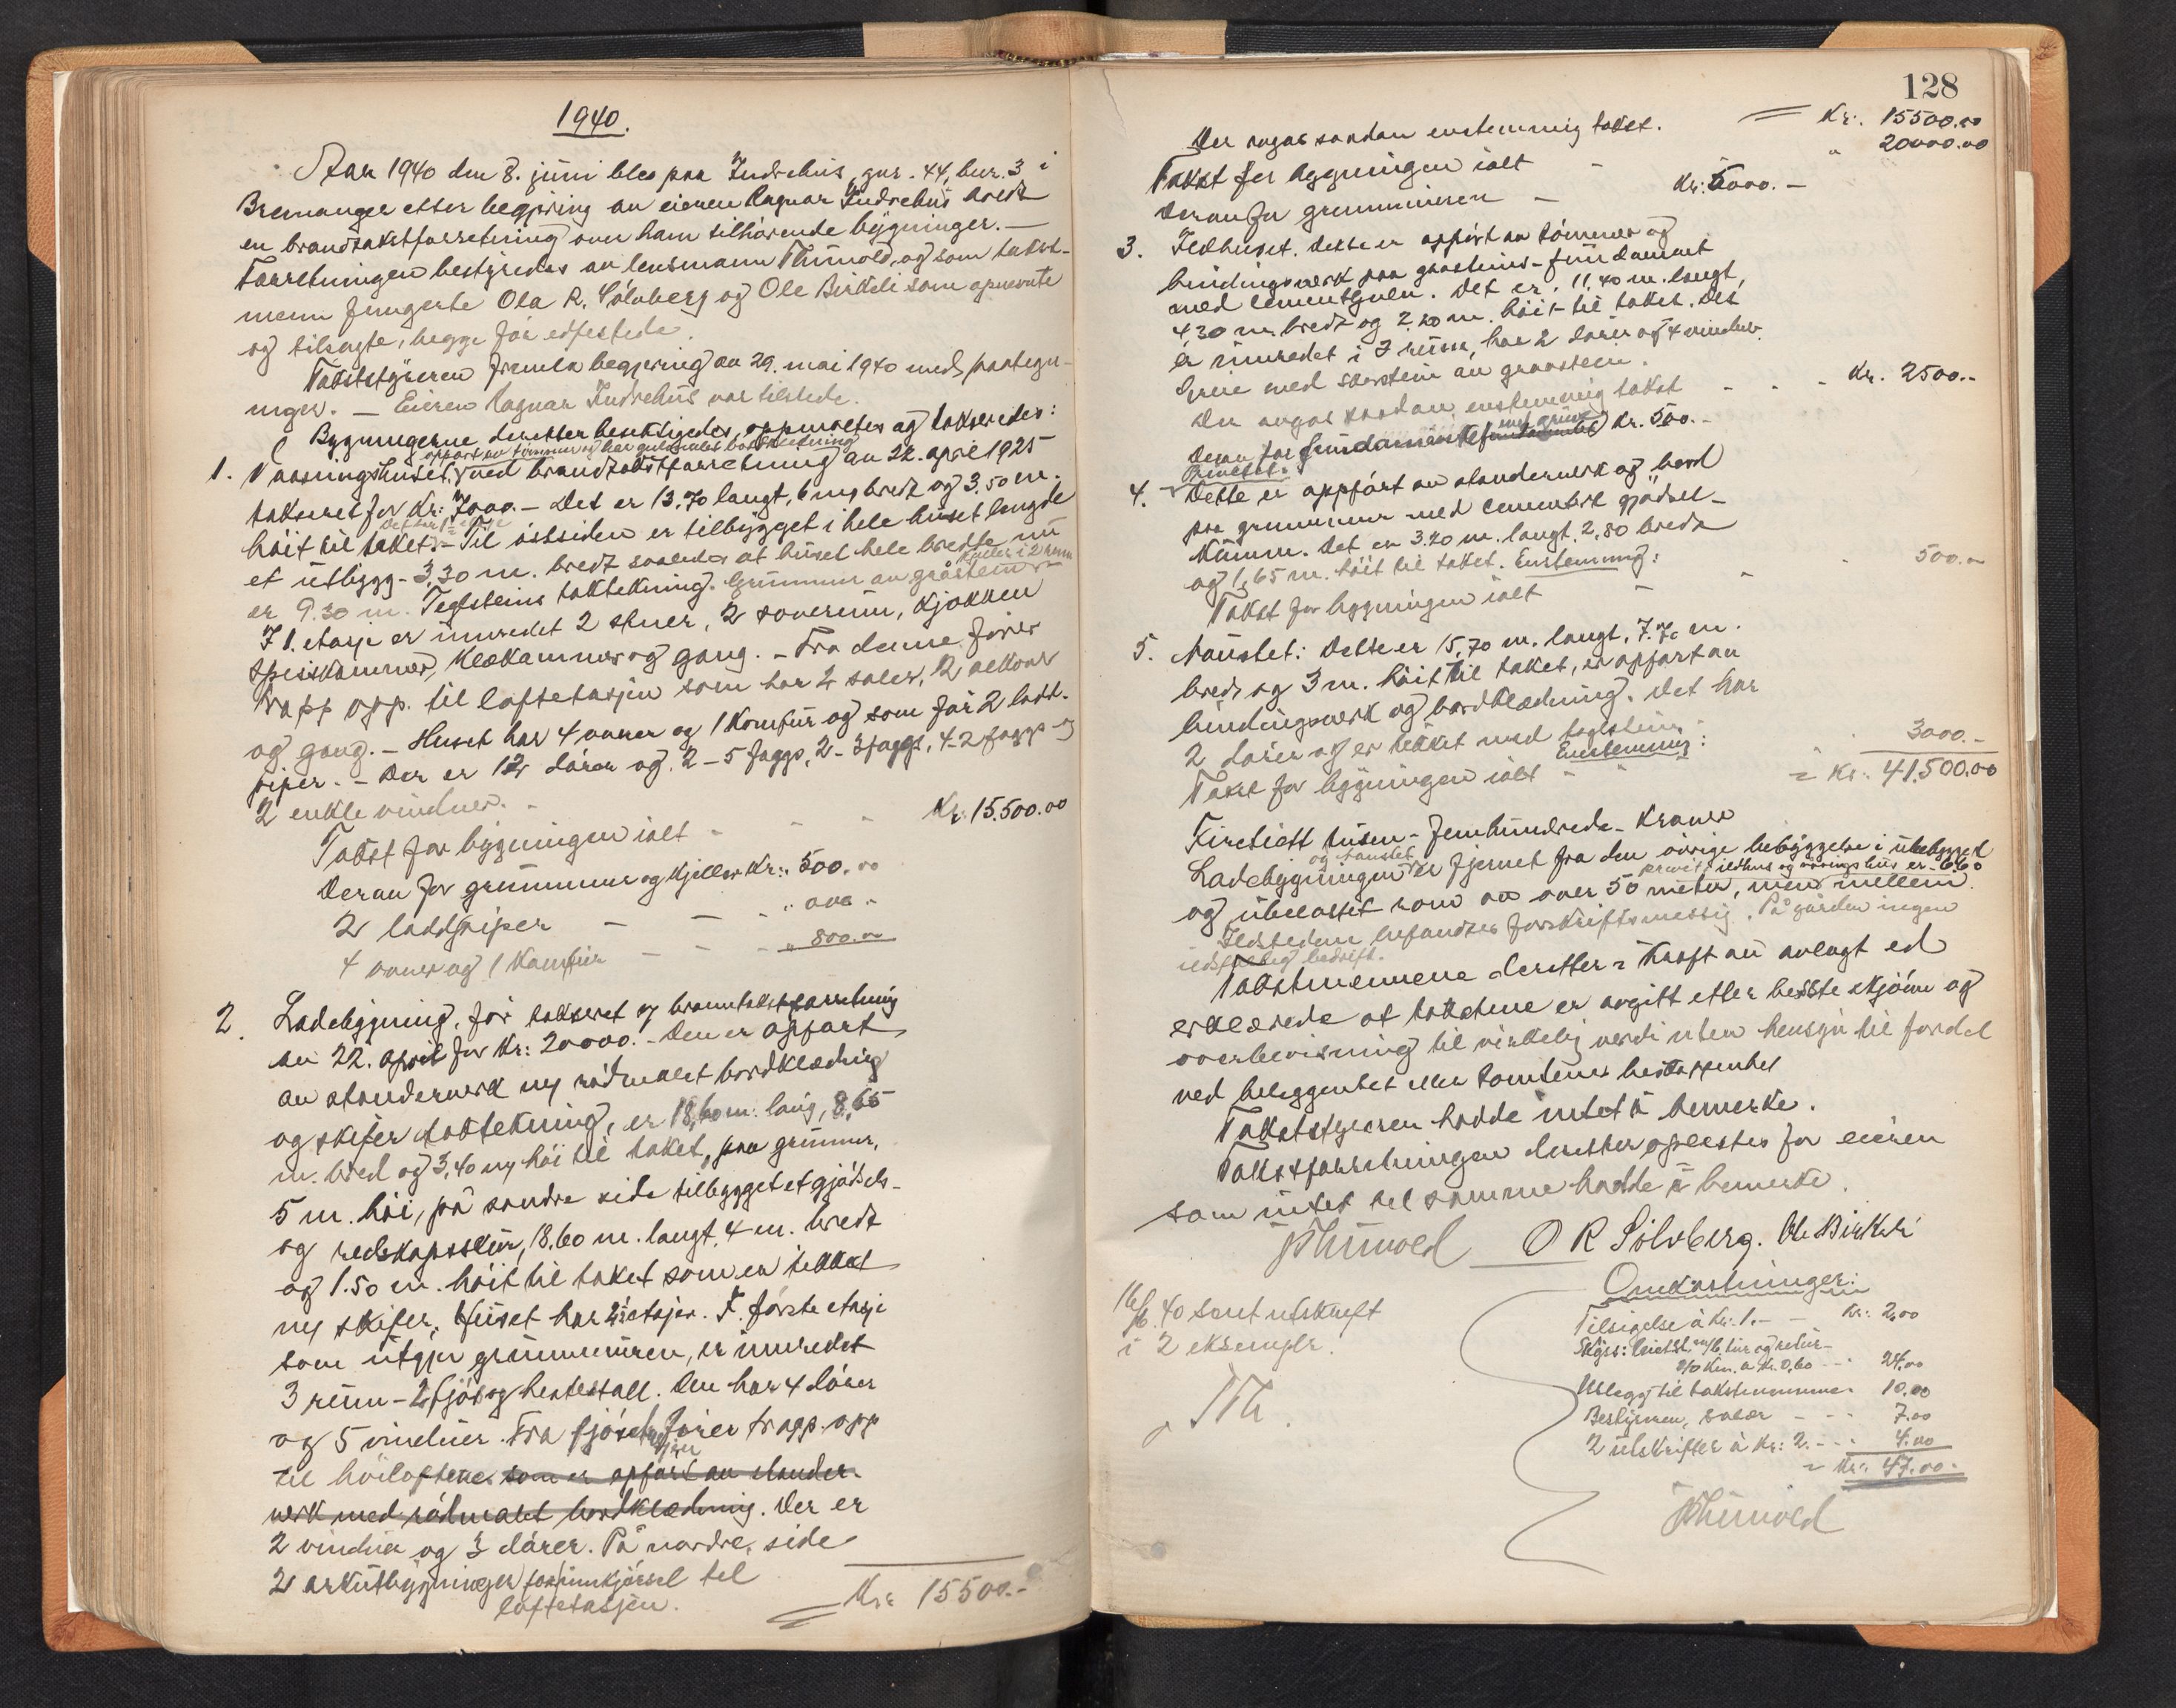 1940.
Aar 1940 den 8. juni blev paa Indrehus, gnr. 44, bnr. 3 i
Bremanger etter begjæring av eieren Ragnar Indrehus holdt
en brandtakstforretning over ham tilhørende bygninger. —
Forretningen bestyredes av lensmann Thunold, og som takst-
menn fungerte Ola R. Sölvberg og Ole Birkeli som opnevnte
og tilsagte, begge før edfestede.
Takststyreren fremla begjæring av 29. mai 1940 med paategn-
inger. — Eieren Ragnar Indrehus var tilstede.
Bygningerne deretter besiktigedes, oppmaaltes og takseredes:
opført av tømmer og har gulmalet bordklædning
1. Vaaningshuset, ved brandtakstforretning av 22. april 1925
taksert for Kr: 7000. — Det er 13.70 langt, 6 m bredt og 3.50 m.
høit til taket. — Til østsiden er tilbygget i hele huset lengde
et utbygg - 3,30 m. bredt saaledes at huset hele bredde nu
er 9.30 m. Teglsteins taktekning. Grunnmur av gråstein
Kjeller i 2 rum
I 1. etasje er innredet 2 stuer, 2 soverum, kjøkken
spiskammer, klækammer og gang. — Fra denne fører
trapp opp til loftetasjen som har 2 saler, 2 alkover
og gang. — Huset har 4 ovner og 1 komfur og som før 2 ladd-
piper. — Der er 12 dører og 2 - 5 faggs, 2 - 3 faggs, 4 - 2 faggs og
2 enkle vinduer. —
Takst for bygningen ialt - - - Kr. 15.500.00
Derav for grunnmur og kjeller Kr.: 500.00
2 laddpiper — — -
4 ovner og 1 komfur — - - " 800.00
2. Ladebygning, før taksert og branntakstforretning
av 22. april for Kr: 20000. - Den er opført
av stenderverk m/ rødmalet bordklædning
og skifer taktekning, er 18,60 m. lang, 8,65
m. bred og 3,40 m høi til taket, paa grunnmur,
5 m. høi, på søndre side tilbygget et gjødsels-
og redskapsskur, 18,60 m. langt, 4 m. bredt
og 1.50 m. høit til taket som er tekket
m/ skifer. Huset har 2 etasjer. I første etasje
som utgjør grunnmuren, er innredet
3 rum - 2 fjøs og hestestall. Den har 4 dører
og 5 vinduer. Fra fjøset fører trapp opp
til høiloftene som er opført av stender-
verk med rødmalet bordklædning. Der er
2 vinduer og 3 dører. På nordre side
2 arkutbygninger for innkjørsel til
loftetasjen. Kr: 15500.-
128
Der avgav saadan enstemmig takst. = Kr. 15500.00
Takst for bygningen ialt - " 20000.00
Derav for grunnmuren — Kr: 5000. —
3. Ildhuset. Dette er oppført av tømmer og
bindingsverk paa graasteins-fundament
med cementgulv. Det er: 11,40 m. langt,
4,30 m. bredt og 2.20 m. høit til taket. Det
er innredet i 3 rum, har 2 dører og 4 vinduer.
Grue med skorstein av graastein.
Der avgav saadan enstemmig takst - - - Kr. 2500.-
Derav for fundamentet med grue Kr. 500.-
Privetet.
4. Dette er oppført av stenderverk og bord
paa grunnmur med cementert gjødsel-
kumm. Det er 3.20 m. langt, 2,80 bredt
og 1,65 m. høit til taket. Enstemmig:
Takst for bygningen ialt — - - 500.-
5. Naustet: Dette er 15,70 m. langt, 7.70 m.
bredt og 3 m. høit til taket, er oppført av
bindingsverk og bordklædning. Det har
2 dører og er tekket med taglstein.
Enstemmig:
Takst for bygningen ialt - - - 3000.-
= Kr. 41.500.00
Firetiett tusen - femhundrede - kroner
Ladebygningen og naustet er fjernet fra den øvrige bebyggelse i ubebygget
privet, ildhus og vaaningshus er 6.60
og ubelastet rom av over 50 meter, men mellem
Ildstedene befandtes forskriftsmessig. På gården ingen
ildsfarlig bedrift.
Takstmennene deretter i kraft av avlagt ed
erklærede at takstene er avgitt etter beste skjønn og
overbevisning til virkelig verdi uten hensyn til fordel
ved beliggenhet eller tomtens beskaffenhet
Takststyreren hadde intet å bemerke.
Takstforretningen deretter oplestes for eieren
som intet til samme hadde å bemerke.
Thunold O R Sölvberg. Ole Birkeli
16/6.40 sendt utskrift
i 2 eksempl.
Th.
Omkostninger:
Tilsigelse à Kr. 1.- - Kr. 2,00
Skyss: tur og retur-
à Kr. 0,60 - - 24.00
Utlegg til takstmennene 10.00
Bestyreren, salær - - - 7.00
2 utskrifter à Kr: 2. - - - 4.00
= Kr. 47.00-
Thunold